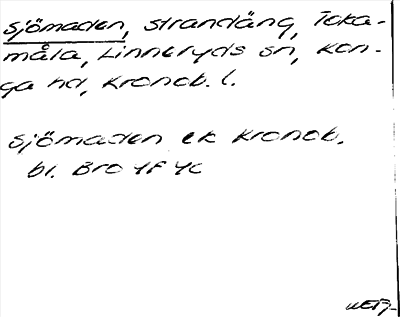 Sjömaden, strandäng, Toka-
måla, Linneryds sn, Kon-
ga hd, Kronob. l.
Sjömaden ek Kronob.
bl. Bro 4f 4c